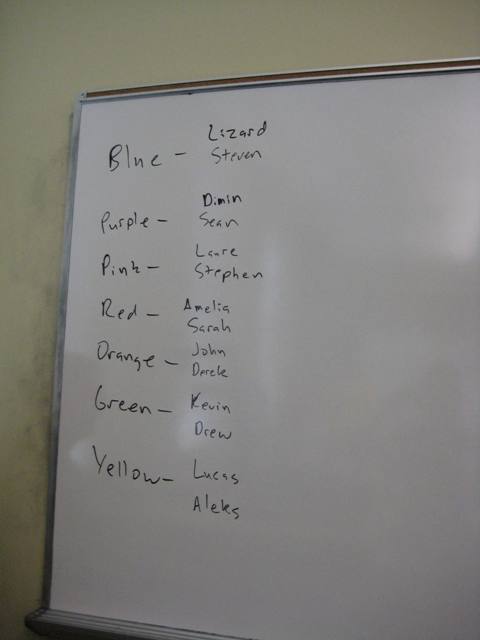 Lizard
Blue - Steven
Dimin
Purple - Sean
Laure
Pink - Stephen
Amelia
Red - Sarah
John
Orange - Derek
Kevin
Green - Drew
Lucas
Yellow - Aleks